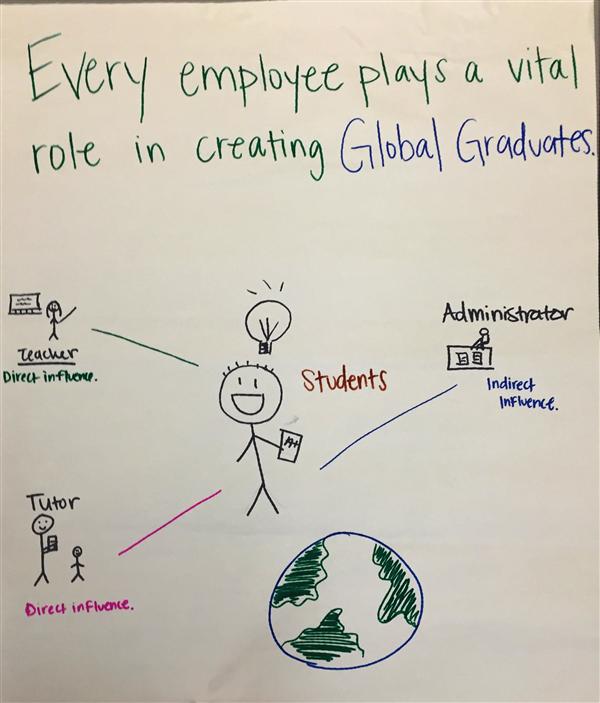 Every employee plays a vital
role in creating Global Graduates.
Teacher
Direct influence.
Students
A+
Administrator
Indirect
Influence.
Tutor
Direct influence.